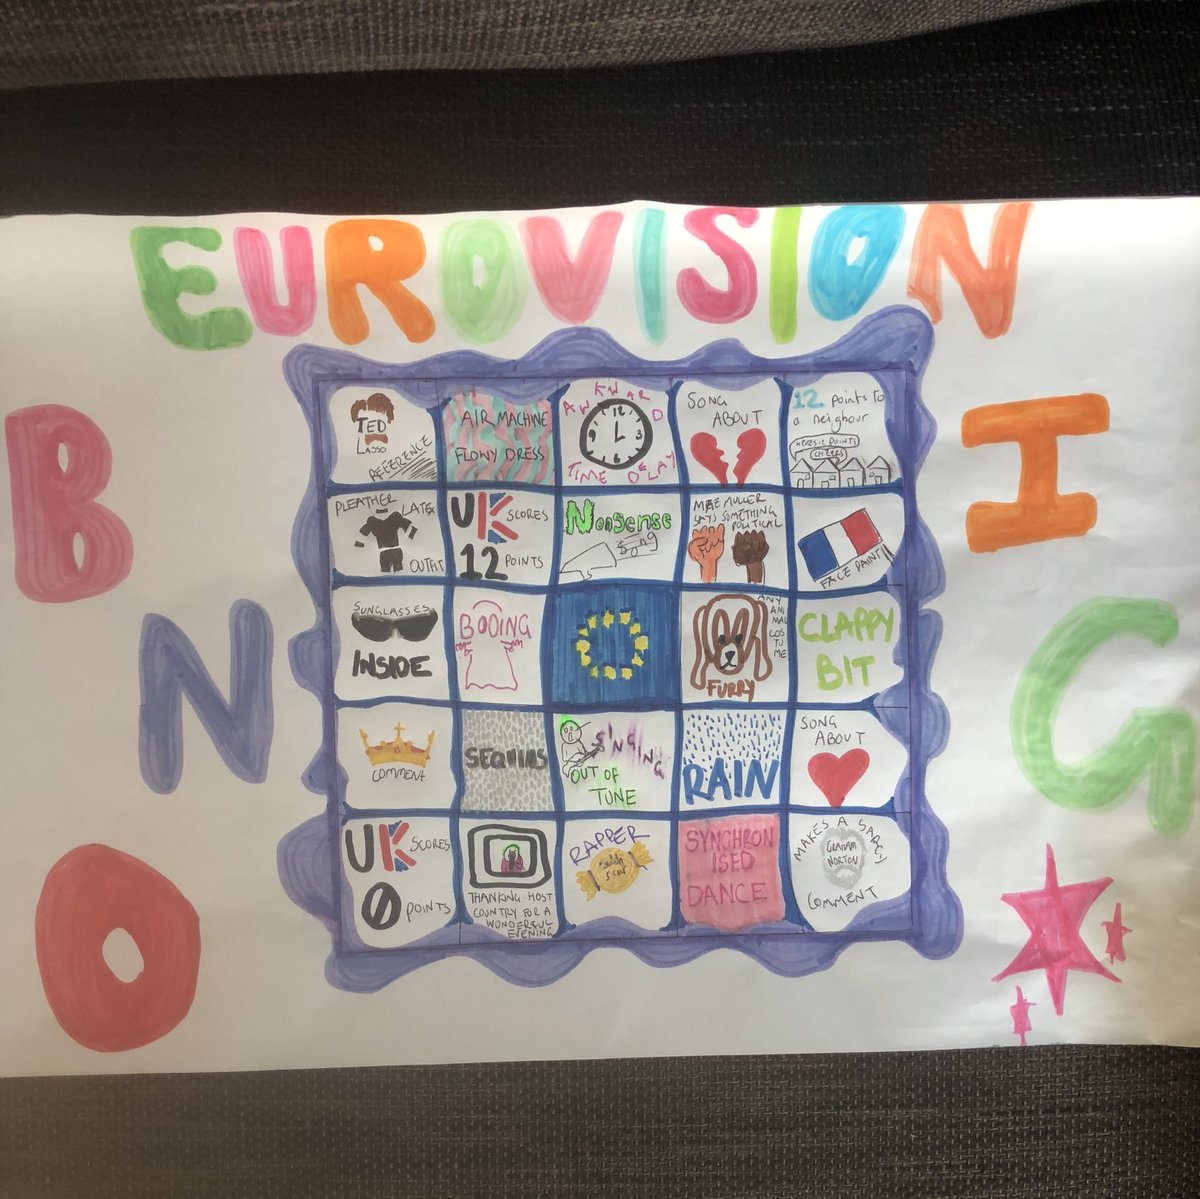 EUROVISION
BINGO
TED
LASSO
REFERENCE
AIR MACHINE
FLOWY DRESS
AWKWARD
12
3
9
TIME DELAY
SONG
ABOUT
12 points to
a neighbour
HERES 12 POINTS
CHEERS
PLEATHER
LATEX
OUTFIT
UK SCORES
12 POINTS
Nonsense
Song
MAE MULLER
SAYS SOMETHING
POLITICAL
FACE PAINT
SUNGLASSES
INSIDE
BOOING
ANY
ANI
MAL
COS
TU
ME
FURRY
CLAPPY
BIT
COMMENT
SEQUINS
SINGING
OUT OF
TUNE
RAIN
SONG
ABOUT
UK SCORES
0 POINTS
THANKING HOST
COUNTRY FOR A
WONDERFUL
EVENING
RAPPER
SYNCHRON
ISED
DANCE
MAKES A SASSY
GRAHAM
NORTON
COMMENT